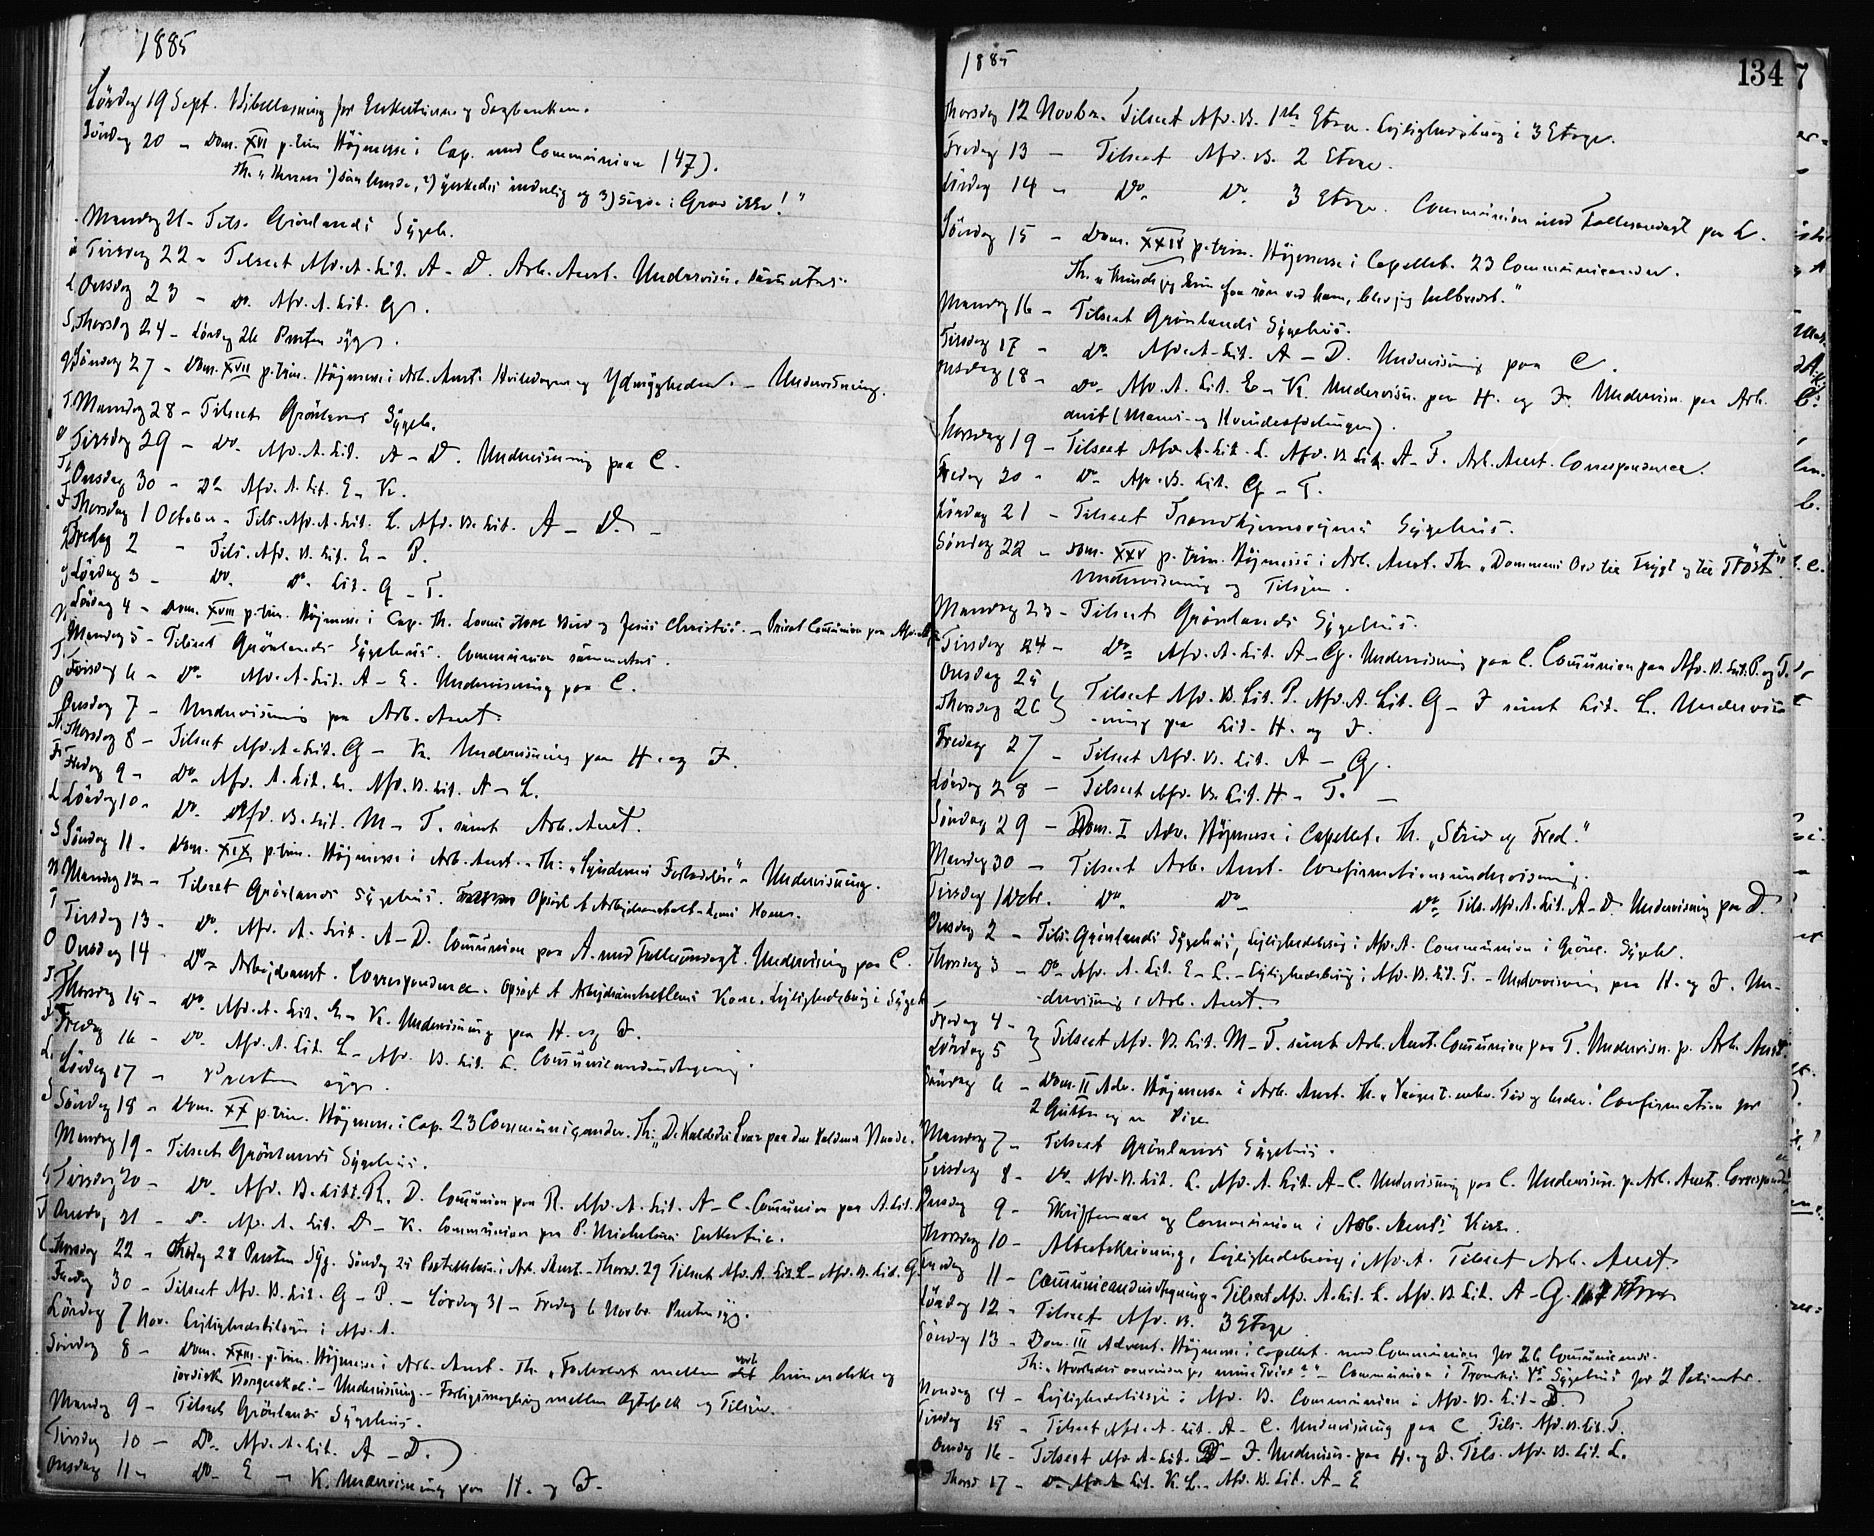 1885
Lördag 19 Sept. Bibellæsning for Enkerkurerne og Sagbanken.
Söndag 20 – Dom. XVI p. trin Högmesse i Cap. med Communion (47).
Th. „
Mandag 21 – Tils. Grönlands Sygeh.
Tirsdag 22 – Tilseet Afd. A. Lit. A – D. Arb. Anst. Undervisn. sammestds.
Onsdag 23 – Do. Afd. A. Lit. G.
Thorsdag 24 – Lördag 26 Presten syg.
Söndag 27 – Dom. XVII p. trin. Högmesse i Arb. Anst. Hviledagen og Ydmygheden. – Undervisning.
Mandag 28 – Tilseet Grönlands Sygeh.
Tirsdag 29 – Do. Afd. A. Lit. A – D. Undervisning paa C.
Onsdag 30 – Do. Afd. A. Lit. E – K.
Thorsdag 1 October – Tils. Afd. A. Lit. L. Afd. B. Lit. A – D. –
Fredag 2 – Tils. Afd. B. Lit. E – P.
Lördag 3 – Do. Do. Lit. Q – T.
Söndag 4 – Dom. XVIII p. trin. Högmesse i Cap. Th. Lovens store Bud og Jesus Christus. – Privat Communion paa Afd.
Mandag 5 – Tilseet Grönlands Sygehus. Communion sammestds.
Tirsdag 6 – Do. Afd. A. Lit. A – E. Undervisning paa C.
Onsdag 7 – Undervisning paa Arb. Anst.
Thorsdag 8 – Tilseet Afd. A. Lit. G – K. Undervisning paa H. og J.
Fredag 9 – Do. Afd. A. Lit. L. Afd. B. Lit. A – L.
Lördag 10 – Do. Afd. B. Lit. M – T. samt Arb. Anst.
Söndag 11 – Dom. XIX p. trin. Högmesse i Arb. Anst. – Th: „Syndernes Forladelse“ – Undervisning.
Mandag 12 – Tilseet Grönlands Sygehus. Opsögt A Arbejdsanstaltslems Kone.
Tirsdag 13 – Do. Afd. A. Lit. A – D. Communion paa A. med Fællesandagt. Undervisning paa C.
Onsdag 14 – Do. Arbejdsanst. Correspondance. Opsögt A Arbejdsanstaltlems Kone. Lejlighedsbesög i Sygeh
Thorsdag 15 – Do. Afd. A. Lit. E – K. Undervisning paa H. og J.
Fredag 16 – Do. Afd. A. Lit. L – Afd. B. Lit. L. Communicandindtegning.
Lördag 17 – Presten syg.
Söndag 18 – Dom. XX p. trin. Högmesse i Cap. 23 Communicander. Th: „De Kaldedes Svar paa den kaldende Naade.“
Mandag 19 – Tilseet Grönlands Sygehus.
Tirsdag 20 – Do. Afd. B. Lit. R. D. Communion paa R. Afd. A. Lit. A – C. Communion paa A. Lit.
Onsdag 21 – Do. Afd. A. Lit. D – K. Communion paa P. Michelsens Enkestue.
Thorsdag 22 – Lördag 24 Presten Syg. Söndag 25 i Arb. Anst. – Thorsd. 29 Tilseet Afd. A. Lit. L – Afd. B. Lit. G.
Fredag 30 – Tilseet Afd. B. Lit. G – P. – Lördag 31 – Fredag 6 Novbr. Presten syg.
Lördag 7 Nov. Lejlighedstilsyn i Afd. A.
Söndag 8 – Dom. XXIII p. trin. Högmesse i Arb. Anst. Th. „Forholdet mellem vort himmelske og
jordiske Borgerskab.“ – Undervisning. – Forligsmægling mellem Ægtefolk og Tilsyn.
Mandag 9 – Tilseet Grönlands Sygehus.
Tirsdag 10 – Do. Afd. A. Lit. A – D.
Onsdag 11 – Do. E – K. Undervisning paa H. og J.
1885
134 7
Thorsdag 12 Novbr. Tilseet Afd. B. 1ste Etage. Lejlighedsbesög i 3 Etage.
Fredag 13 – Tilseet Afd. B. 2 Etage.
Lördag 14 – Do. Do. 3 Etage. Communion med Fællesandagt paa L.
Söndag 15 – Dom. XXIV p. trin. Högmesse i Capellet. 23 Communicander.
Th. „Kunde jeg kun faa röre ved ham, blev jeg helbredet.“
Mandag 16 – Tilseet Grönlands Sygehus.
Tirsdag 17 – Do. Afd. A. Lit. A – D. Undervisning paa C.
Onsdag 18 – Do. Afd. A. Lit. E – K. Undervisn. paa H. og J. Undervisn. paa Arb.
anst (Mands- og Kvindeafdelingen).
Thorsdag 19 – Tilseet Afd. A. Lit. L. Afd. B. Lit. A – F. Arb. Anst. Correspondance.
Fredag 20 – Do. Afd. B. Lit. G – T.
Lördag 21 – Tilseet Trondhjemsvejens Sygehus.
Söndag 22 – Dom. XXV p. trin. Högmesse i Arb. Anst. Th. „Dommens Ord til Frygt og til Tröst“.
Undervisning og Tilsyn.
Mandag 23 – Tilseet Grönlands Sygehus.
Tirsdag 24 – Do. Afd. A. Lit. A – G. Undervisning paa C. Communion paa Afd. B. Lit. P. og T.
Onsdag 25
Thorsdag 26 } Tilseet Afd. B. Lit. P. Afd. A. Lit. G – J samt Lit. L. Undervis-
ning paa Lit. H. og J.
Fredag 27 – Tilseet Afd. B. Lit. A – G.
Lördag 28 – Tilseet Afd. B. Lit. H – T. –
Söndag 29 – Dom. I Adv. Högmesse i Capellet. Th. „Strid og Fred.“
Mandag 30 – Tilseet Arb. Anst. Confirmationsundervisning.
Tirsdag 1 Decbr. Do. Do. Do. Tils. Afd. A. Lit. A – D. Undervisning paa D.
Onsdag 2 – Tils. Grönlands Sygehus, Lejlighedsbesög i Afd. A. Communion i Grönl. Sygeh.
Thorsdag 3 – Do. Afd. A. Lit. E – L. – Lejlighedsbesög i Afd. B. Lit. T. – Undervisning paa H. og J. Un-
dervisning i Arb. Anst.
Fredag 4 –
Lördag 5 } Tilseet Afd. B. Lit. M – T. samt Arb. Anst. Communion paa T. Undervisn. p. Arb. Anst.
Söndag 6 – Dom. II Adv. Högmesse i Arb. Anst. Th. Confirmation for
2 Gutter og en Pige
Mandag 7 – Tilseet Grönlands Sygehus.
Tirsdag 8 – Do. Afd. B. Lit. L. Afd. A. Lit. A – C. Undervisning paa C. Undervisn. p. Arb. Anst. Correspondance
Onsdag 9 – Skriftemaal og Communion i Arb. Ansts Kirke.
Thorsdag 10 – Attestskrivning, Lejlighedsbesög i Afd. A. Tilseet Arb. Anst.
Fredag 11 – Communicandindtegning – Tilseet Afd. A. Lit. L. Afd. B. Lit. A – G.
Lördag 12 – Tilseet Afd. B. 3 Etage
Söndag 13 – Dom. III Advent. Högmesse i Capellet med Communion for 26 Communicand.
Th: – Communion i Tromsö Vs Sygehus for 2 Patienter.
Mandag 14 – Lejlighedstilsyn i Afd. B. Communion i Afd. B. Lit. D.
Tirsdag 15 – Tilseet Afd. A. Lit. A – C. Undervisning paa C. Tils. Afd. B. Lit. T.
Onsdag 16 – Tilseet Afd. A. Lit. D – J. Undervisn. paa H. og J. Tils. Afd. B. Lit. L.
Thorsd 17 – Do. Afd. A Lit. K. L. – Afd. B. Lit. A – E